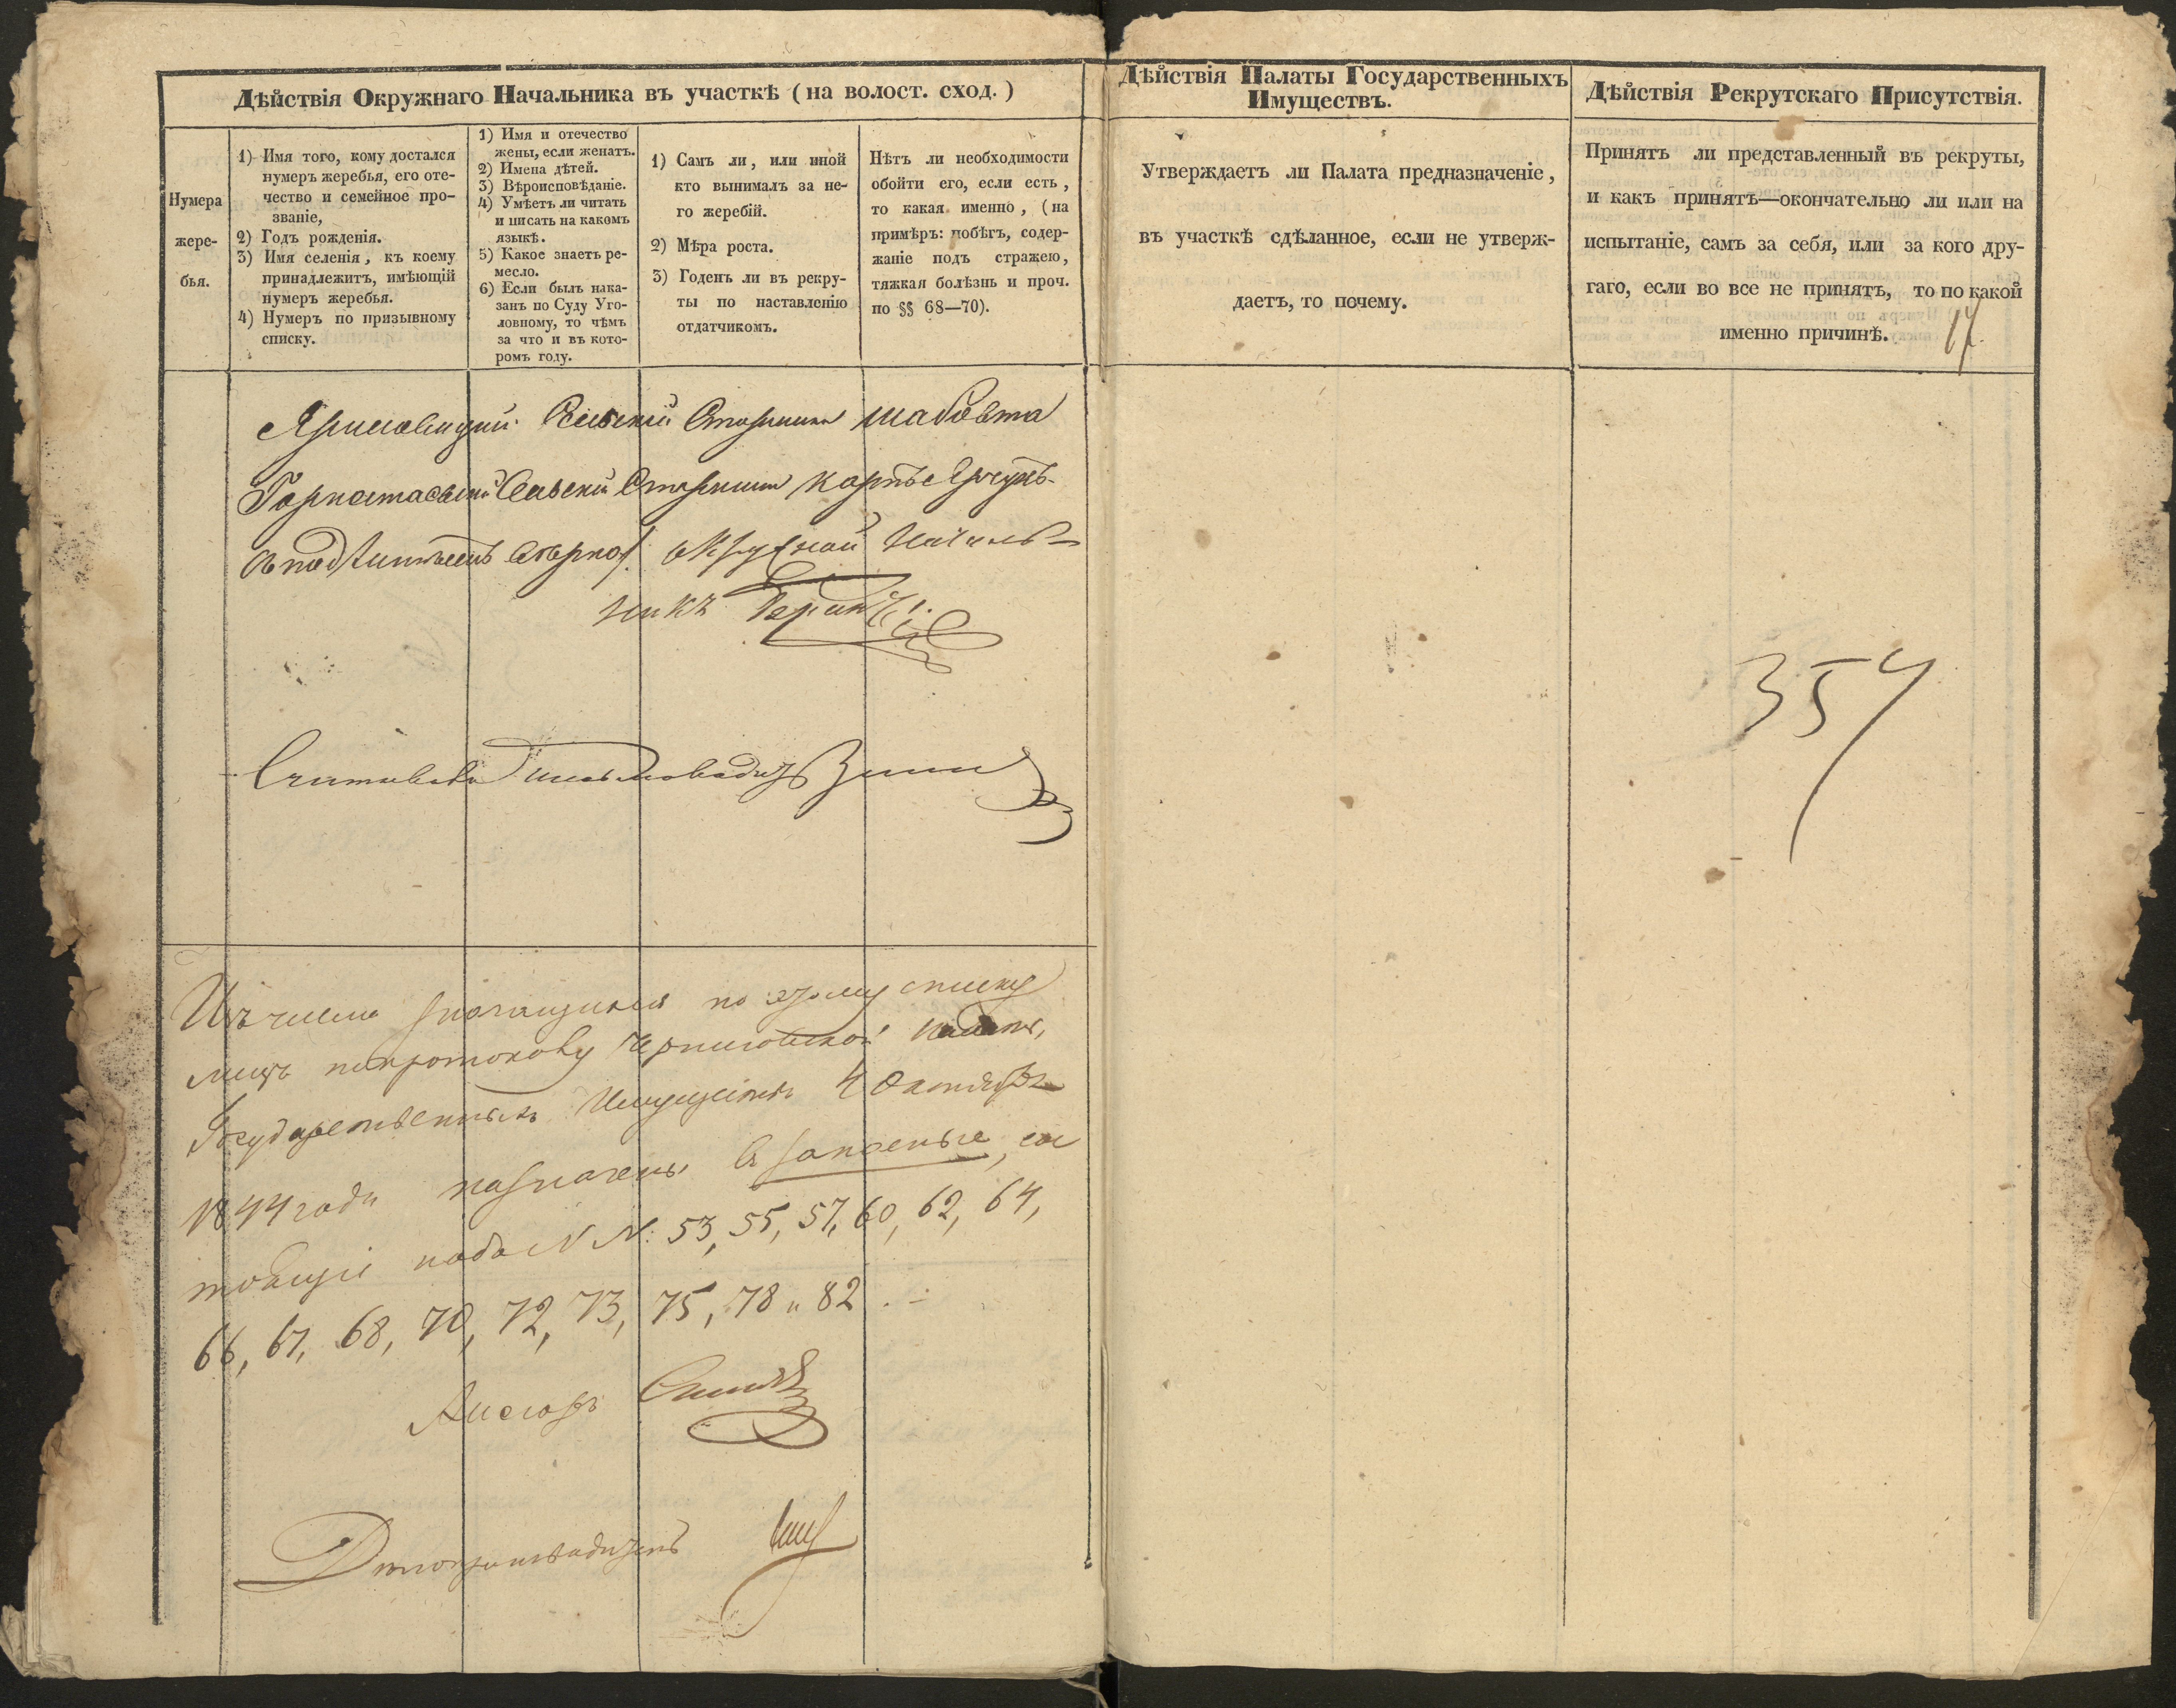 Дѣйствія Окружнаго Начальника въ участкѣ (на волост. сход.)
Нумера
жере-
бья.
1) Имя того, кому достался
нумеръ жеребья, его оте-
чество и семейное про-
званіе,
2) Годъ рожденія.
3) Имя селенія, къ коему
принадлежитъ, имѣющій
нумеръ жеребья.
4) Нумеръ по призывному
списку.
1) Имя и отечество
жены, если женатъ.
2) Имена дѣтей.
3) Вѣроисповѣданіе.
4) Умѣетъ ли читать
и писать на какомъ
языкѣ.
5) Какое знаетъ ре-
месло.
6) Если былъ нака-
занъ по Суду Уго-
ловному, то чѣмъ
за что и въ кото-
ромъ году.
1) Самъ ли, или иной
кто вынималъ за не-
го жеребій.
2) Мѣра роста.
3) Годенъ ли въ рекру-
ты по наставленію
отдатчикомъ.
Нѣтъ ли необходимости
обойти его, если есть,
то какая именно, (на
примѣръ: побѣгъ, содер-
жаніе подъ стражею,
тяжкая болѣзнь и проч.
по §§ 68—70).
Дѣйствія Палаты Государственныхъ
Имуществъ.
Утверждаетъ ли Палата предназначеніе,
въ участкѣ сдѣланное, если не утверж-
даетъ, то почему.
Дѣйствія Рекрутскаго Присутствія.
Принятъ ли представленный въ рекруты,
и какъ принятъ—окончательно ли или на
испытаніе, самъ за себя, или за кого дру-
гаго, если во все не принятъ, то по какой
именно причинѣ.
Сельскій Старшина
Сельскій Старшина
Съ подлиннымъ вѣрно: Окружной Началь-
никъ
354
Изъ числа значущихся по этому списку
лицъ по протоколу Черниговской Палаты
Государственныхъ Имуществъ 4 Октября
1844 года назначены въ запасные, сос
тоящіе подъ N N: 53, 55, 57, 60, 62, 64,
66, 67, 68, 70, 72, 73, 75, 78 и 82.
Ассесоръ
Дѣлопроизводитель